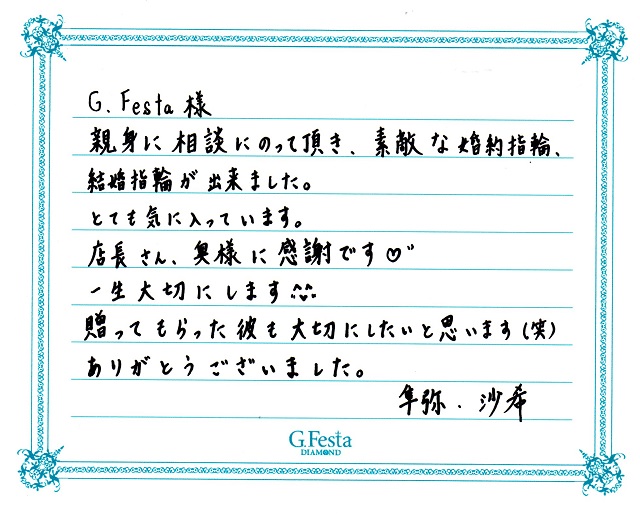 G.Festa様
親身に相談にのって頂き、素敵な婚約指輪、
結婚指輪が出来ました。
とても気に入っています。
店長さん、奥様に感謝です♡"
一生大切にします^^
贈ってもらった彼も大切にしたいと思います(笑)
ありがとうございました。
隼弥・沙希
G.Festa
DIAMOND